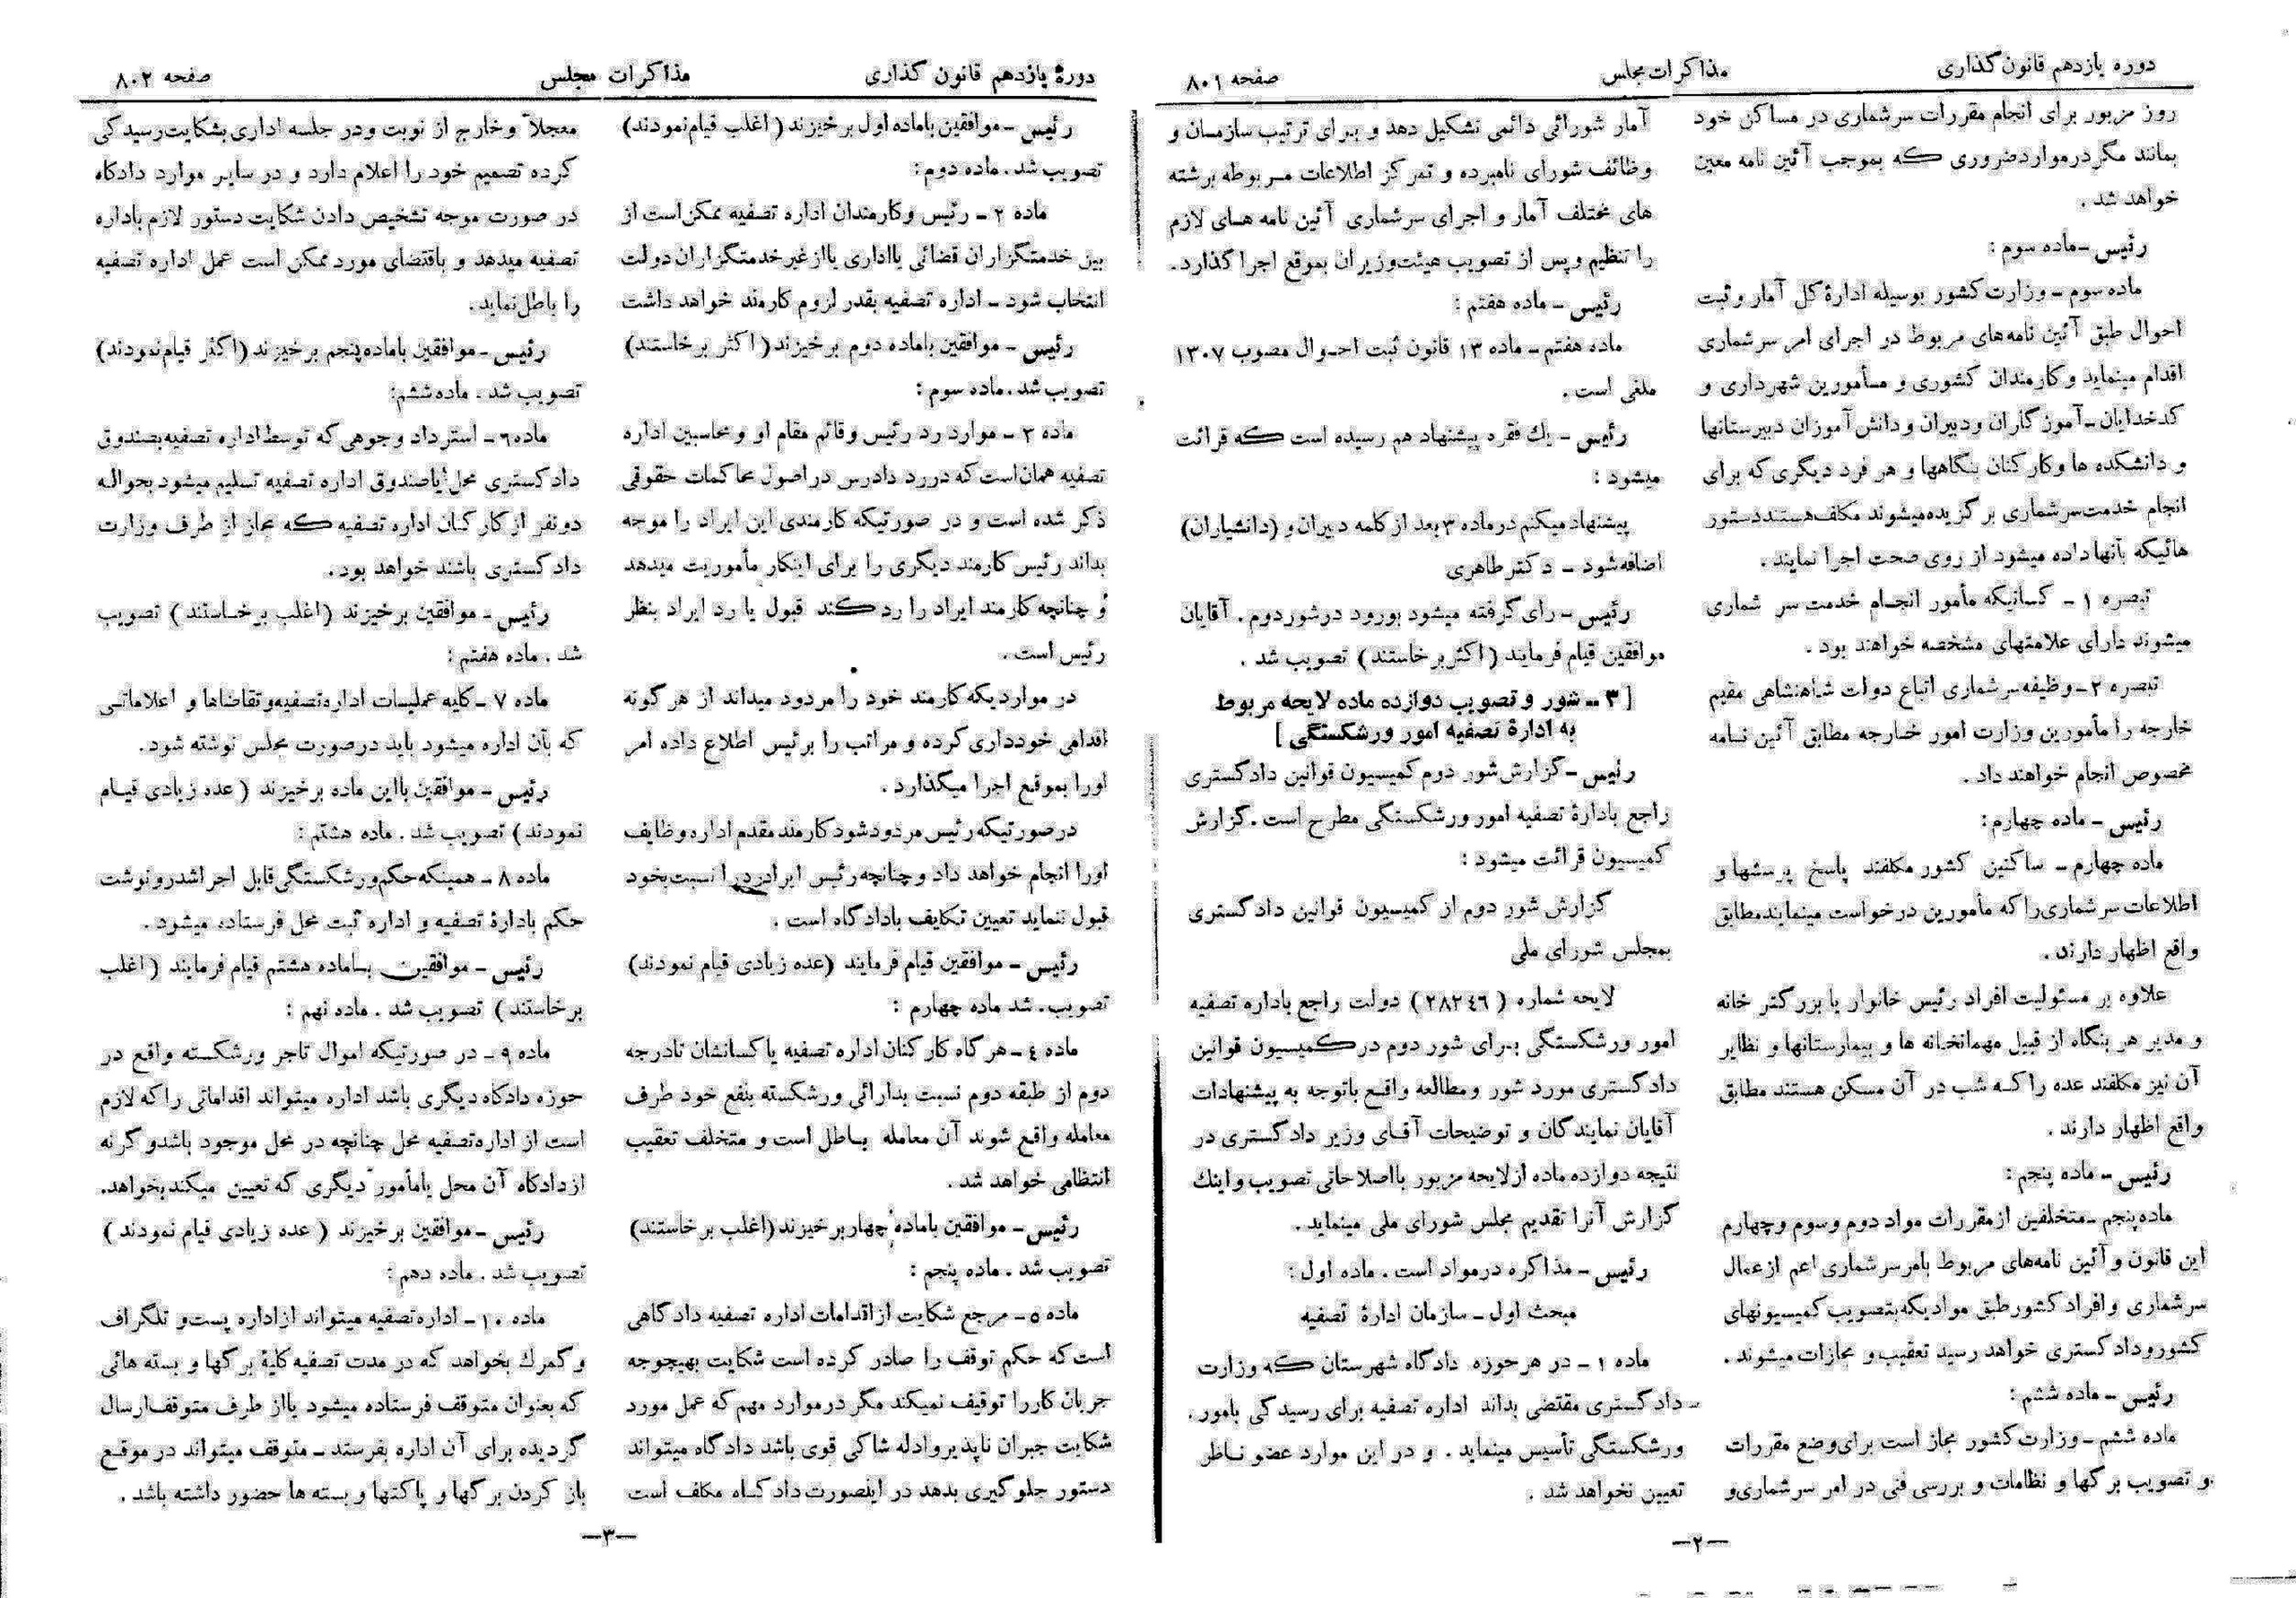 دوره یازدهم قانون‌گذاری
مذاکرات مجلس
صفحه ۸۰۱
روز مزبور برای انجام مقررات سرشماری در مساکن خود
بمانند مگر در موارد ضروری که بموجب آئین نامه معین
خواهد شد .
رئیس – ماده سوم :
ماده سوم – وزارت کشور بوسیله ادارۀ کل آمار و ثبت
احوال طبق آئین نامه‌های مربوط در اجرای امر سرشماری
اقدام مینماید و کارمندان کشوری و مأمورین شهرداری و
کدخدایان – آموزگاران و دبیران و دانش آموزان دبیرستانها
و دانشکده ها و کارکنان بنگاهها و هر فرد دیگری که برای
انجام خدمت سرشماری برگزیده میشوند مکلف هستند دستور
هائیکه بآنها داده میشود از روی صحت اجرا نمایند .
تبصره ۱ – کسانیکه مأمور انجام خدمت سر شماری
میشوند دارای علامتهای مشخصه خواهند بود .
تبصره ۲ – وظیفه سرشماری اتباع دولت شاهنشاهی مقیم
خارجه را مأمورین وزارت امور خارجه مطابق آئین نامه
مخصوص انجام خواهند داد .
رئیس – ماده چهارم :
ماده چهارم – ساکنین کشور مکلفند پاسخ پرسشها و
اطلاعات سرشماری را که مأمورین درخواست مینمایند مطابق
واقع اظهار دارند .
علاوه بر مسئولیت افراد رئیس خانوار یا بزرگتر خانه
و مدیر هر بنگاه از قبیل مهمانخانه ها و بیمارستانها و نظایر
آن نیز مکلفند عده را که شب در آن مسکن هستند مطابق
واقع اظهار دارند .
رئیس – ماده پنجم :
ماده پنجم – متخلفین از مقررات مواد دوم و سوم و چهارم
این قانون و آئین نامه‌های مربوط بامر سرشماری اعم از عمال
سرشماری و افراد کشور طبق موادیکه بتصویب کمیسیونهای
کشور و دادگستری خواهد رسید تعقیب و مجازات میشوند .
رئیس – ماده ششم :
ماده ششم – وزارت کشور مجاز است برای وضع مقررات
و تصویب برگها و نظامات و بررسی فنی در امر سرشماری و
آمار شورائی دائمی تشکیل دهد و برای ترتیب سازمان و
وظائف شورای نامبرده و تمرکز اطلاعات مربوطه برشته
های مختلف آمار و اجرای سرشماری آئین نامه های لازم
را تنظیم و پس از تصویب هیئت وزیران بموقع اجرا گذارد .
رئیس – ماده هفتم :
ماده هفتم – ماده ۱۳ قانون ثبت احوال مصوب ۱۳۰۷
ملغی است .
رئیس – یك فقره پیشنهاد هم رسیده است که قرائت
میشود :
پیشنهاد میکنم در ماده ۳ بعد از کلمه دبیران و (دانشیاران)
اضافه شود – دکتر طاهری
رئیس – رأی گرفته میشود بورود در شور دوم . آقایان
موافقین قیام فرمایند (اکثر برخاستند) تصویب شد .
[ ۳ – شور و تصویب دوازده ماده لایحه مربوط
به ادارۀ تصفیه امور ورشکستگی ]
رئیس – گزارش شور دوم کمیسیون قوانین دادگستری
راجع بادارۀ تصفیه امور ورشکستگی مطرح است . گزارش
کمیسیون قرائت میشود :
گزارش شور دوم از کمیسیون قوانین دادگستری
بمجلس شورای ملی
لایحه شماره (۲۸۲۴۶) دولت راجع باداره تصفیه
امور ورشکستگی برای شور دوم در کمیسیون قوانین
دادگستری مورد شور و مطالعه واقع باتوجه به پیشنهادات
آقایان نمایندگان و توضیحات آقای وزیر دادگستری در
نتیجه دوازده ماده از لایحه مزبور با اصلاحاتی تصویب و اینك
گزارش آنرا تقدیم مجلس شورای ملی مینماید .
رئیس – مذاکره در مواد است . ماده اول :
مبحث اول – سازمان ادارۀ تصفیه
ماده ۱ – در هر حوزه دادگاه شهرستان که وزارت
دادگستری مقتضی بداند اداره تصفیه برای رسیدگی بامور
ورشکستگی تأسیس مینماید . و در این موارد عضو ناظر
تعیین نخواهد شد .
–۲–
دورۀ یازدهم قانون گذاری
مذاکرات مجلس
صفحه ۸۰۲
رئیس – موافقین باماده اول برخیزند (اغلب قیام نمودند)
تصویب شد . ماده دوم :
ماده ۲ – رئیس و کارمندان اداره تصفیه ممکن است از
بین خدمتگزاران قضائی یا اداری یا از غیر خدمتگزاران دولت
انتخاب شود – اداره تصفیه بقدر لزوم کارمند خواهد داشت
رئیس – موافقین باماده دوم برخیزند (اکثر برخاستند)
تصویب شد . ماده سوم :
ماده ۳ – موارد رد رئیس و قائم مقام او و محاسبین اداره
تصفیه همان است که در رد دادرس در اصول محاکمات حقوقی
ذکر شده است و در صورتیکه کارمندی این ایراد را موجه
بداند رئیس کارمند دیگری را برای اینکار مأموریت میدهد
و چنانچه کارمند ایراد را رد کند قبول یا رد ایراد بنظر
رئیس است .
در مواردیکه کارمند خود را مردود میداند از هر گونه
اقدامی خودداری کرده و مراتب را برئیس اطلاع داده امر
اورا بموقع اجرا میگذارد .
در صورتیکه رئیس مردود شود کارمند مقدم اداره وظایف
اورا انجام خواهد داد و چنانچه رئیس ایراد رد را نسبت بخود
قبول ننماید تعیین تکلیف بادادگاه است .
رئیس – موافقین قیام فرمایند (عده زیادی قیام نمودند)
تصویب . شد ماده چهارم :
ماده ۴ – هرگاه کارکنان اداره تصفیه یا کسانشان تا درجه
دوم از طبقه دوم نسبت بدارائی ورشکسته بنفع خود طرف
معامله واقع شوند آن معامله باطل است و متخلف تعقیب
انتظامی خواهد شد .
رئیس – موافقین باماده چهار برخیزند (اغلب برخاستند)
تصویب شد . ماده پنجم :
ماده ۵ – مرجع شکایت از اقدامات اداره تصفیه دادگاهی
است که حکم توقف را صادر کرده است شکایت بهیچوجه
جریان کار را توقیف نمیکند مگر در موارد مهم که عمل مورد
شکایت جبران ناپذیر و ادله شاکی قوی باشد دادگاه میتواند
دستور جلوگیری بدهد در اینصورت دادگاه مکلف است
معجلاً و خارج از نوبت و در جلسه اداری بشکایت رسیدگی
کرده تصمیم خود را اعلام دارد و در سایر موارد دادگاه
در صورت موجه تشخیص دادن شکایت دستور لازم باداره
تصفیه میدهد و باقتضای مورد ممکن است عمل اداره تصفیه
را باطل نماید .
رئیس – موافقین باماده پنجم برخیزند (اکثر قیام نمودند)
تصویب شد . ماده ششم :
ماده ۶ – استرداد وجوهی که توسط اداره تصفیه بصندوق
دادگستری محل یا صندوق اداره تصفیه تسلیم میشود بحواله
دو نفر از کارکنان اداره تصفیه که مجاز از طرف وزارت
دادگستری باشند خواهد بود .
رئیس – موافقین برخیزند (اغلب برخاستند) تصویب
شد . ماده هفتم :
ماده ۷ – کلیه عملیات اداره تصفیه و تقاضاها و اعلاماتی
که بآن اداره میشود باید در صورت مجلس نوشته شود .
رئیس – موافقین بااین ماده برخیزند (عده زیادی قیام
نمودند) تصویب شد . ماده هشتم :
ماده ۸ – همینکه حکم ورشکستگی قابل اجرا شد رونوشت
حکم بادارۀ تصفیه و اداره ثبت محل فرستاده میشود .
رئیس – موافقین بـاماده هشتم قیام فرمایند (اغلب
برخاستند) تصویب شد . ماده نهم :
ماده ۹ – در صورتیکه اموال تاجر ورشکسته واقع در
حوزه دادگاه دیگری باشد اداره میتواند اقداماتی را که لازم
است از اداره تصفیه محل چنانچه در محل موجود باشد و گرنه
از دادگاه آن محل یا مأمور دیگری که تعیین میکند بخواهد .
رئیس – موافقین برخیزند (عده زیادی قیام نمودند)
تصویب شد . ماده دهم :
ماده ۱۰ – اداره تصفیه میتواند از اداره پست و تلگراف
و گمرك بخواهد که در مدت تصفیه کلیۀ برگها و بسته هائی
که بعنوان متوقف فرستاده میشود یا از طرف متوقف ارسال
گردیده برای آن اداره بفرستد – متوقف میتواند در موقع
باز کردن برگها و پاکتها و بسته ها حضور داشته باشد .
–۳–